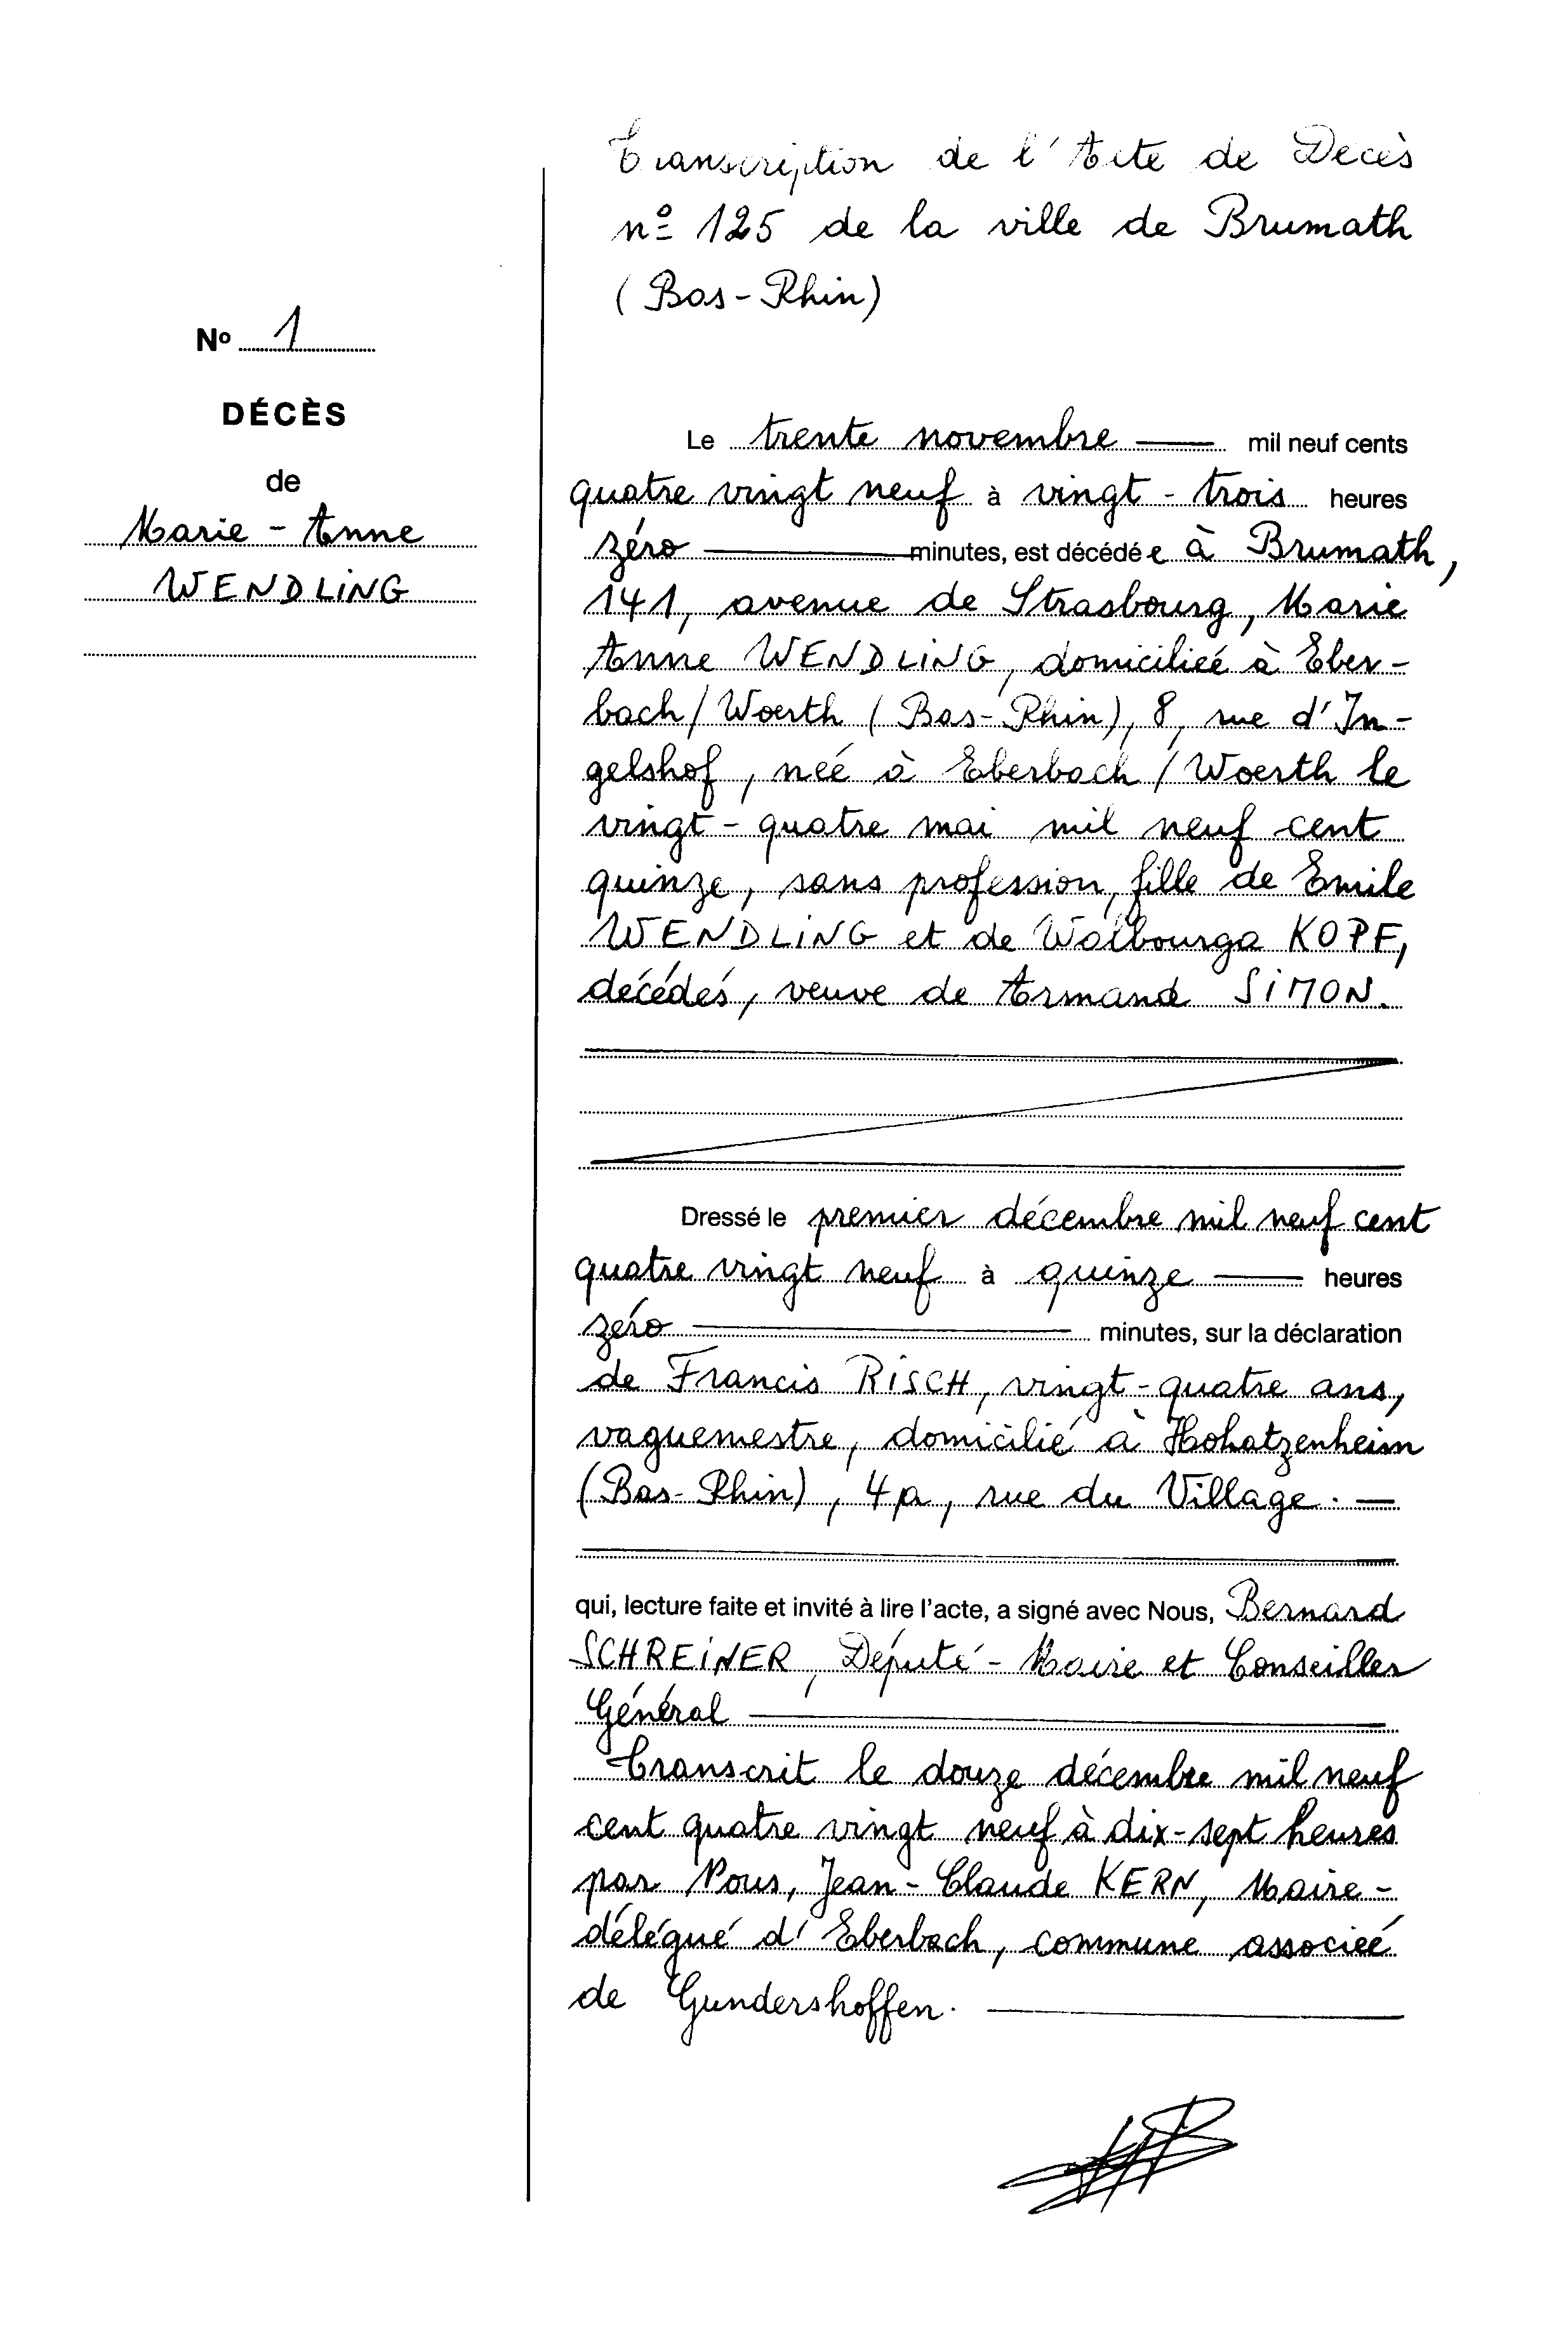 Transcription de l'Acte de Decès
nº 125 de la ville de Brumath
(Bas-Rhin)
Nº 1
DÉCÈS
de
Marie - Anne
WENDLING
Le trente novembre mil neuf cents
quatre vingt neuf à vingt - trois heures
zéro minutes, est décédée à Brumath,
141, avenue de Strasbourg, Marie
Anne WENDLING, domiciliée à Eber-
bach/Woerth (Bas-Rhin), 8, rue d'In-
gelshof, née à Eberbach/Woerth le
vingt-quatre mai mil neuf cent
quinze, sans profession, fille de Emile
WENDLING et de Walbourga KOPF,
décédés, veuve de Armand SIMON.
Dressé le premier décembre mil neuf cent
quatre vingt neuf à quinze heures
zéro minutes, sur la déclaration
de Francis RISCH, vingt-quatre ans,
vaguemestre, domicilié à Hohatzenheim
(Bas-Rhin), 4a, rue du Village. —
qui, lecture faite et invité à lire l'acte, a signé avec Nous, Bernard
SCHREINER, Député-Maire et Conseiller
Général
Transcrit le douze décembre mil neuf
cent quatre vingt neuf à dix-sept heures
par Nous, Jean-Claude KERN, Maire-
délégué d'Eberbach, commune associée
de Gundershoffen.